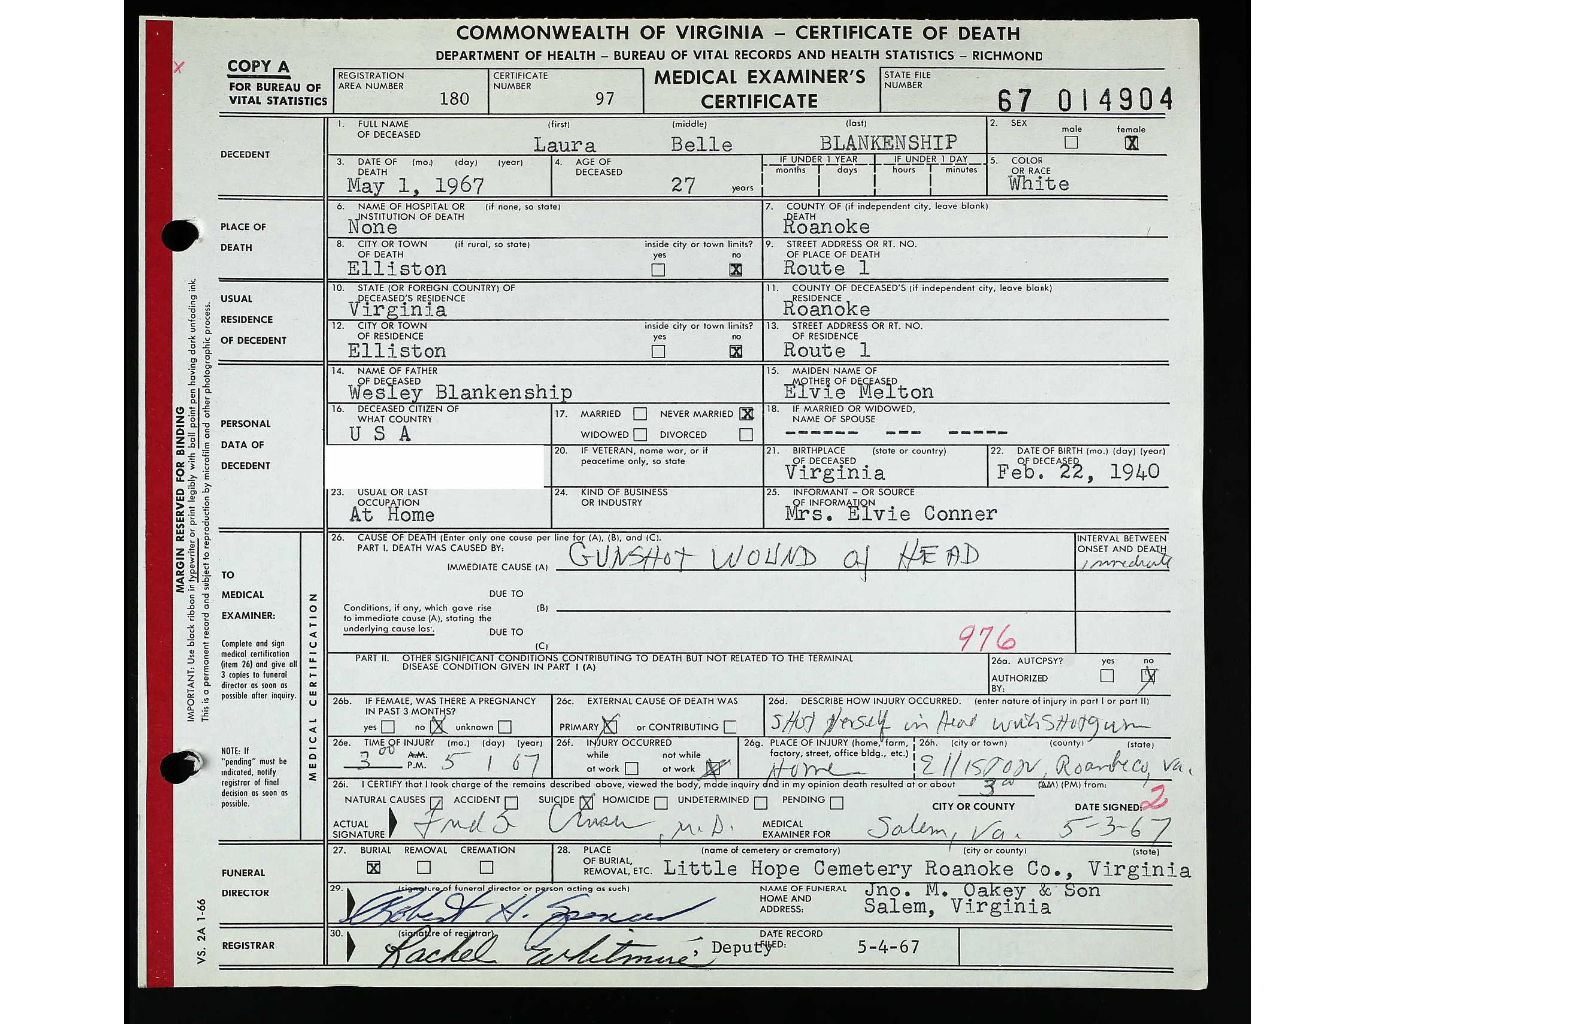 COMMONWEALTH OF VIRGINIA – CERTIFICATE OF DEATH
DEPARTMENT OF HEALTH – BUREAU OF VITAL RECORDS AND HEALTH STATISTICS – RICHMOND
X
COPY A
FOR BUREAU OF
VITAL STATISTICS
REGISTRATION
AREA NUMBER 180
CERTIFICATE
NUMBER 97
MEDICAL EXAMINER'S
CERTIFICATE
STATE FILE
NUMBER 67 014904
DECEDENT
1. FULL NAME (first) (middle) (last)
OF DECEASED
Laura Belle BLANKENSHIP
2. SEX male female X
3. DATE OF (mo.) (day) (year)
DEATH
May 1, 1967
4. AGE OF
DECEASED
27 years
IF UNDER 1 YEAR IF UNDER 1 DAY
months days hours minutes
5. COLOR
OR RACE
White
PLACE OF
DEATH
6. NAME OF HOSPITAL OR (if none, so state)
INSTITUTION OF DEATH
None
7. COUNTY OF (if independent city, leave blank)
DEATH
Roanoke
8. CITY OR TOWN (if rural, so state) inside city or town limits?
OF DEATH yes no
Elliston X
9. STREET ADDRESS OR RT. NO.
OF PLACE OF DEATH
Route 1
USUAL
RESIDENCE
OF DECEDENT
10. STATE (OR FOREIGN COUNTRY) OF
DECEASED'S RESIDENCE
Virginia
11. COUNTY OF DECEASED'S (if independent city, leave blank)
RESIDENCE
Roanoke
12. CITY OR TOWN inside city or town limits?
OF RESIDENCE yes no
Elliston X
13. STREET ADDRESS OR RT. NO.
OF RESIDENCE
Route 1
PERSONAL
DATA OF
DECEDENT
14. NAME OF FATHER
OF DECEASED
Wesley Blankenship
15. MAIDEN NAME OF
MOTHER OF DECEASED
Elvie Melton
16. DECEASED CITIZEN OF
WHAT COUNTRY
U S A
17. MARRIED NEVER MARRIED X
WIDOWED DIVORCED
18. IF MARRIED OR WIDOWED,
NAME OF SPOUSE
------ --- -----
20. IF VETERAN, name war, or if
peacetime only, so state
21. BIRTHPLACE (state or country)
OF DECEASED
Virginia
22. DATE OF BIRTH (mo.) (day) (year)
OF DECEASED
Feb. 22, 1940
23. USUAL OR LAST
OCCUPATION
At Home
24. KIND OF BUSINESS
OR INDUSTRY
25. INFORMANT – OR SOURCE
OF INFORMATION
Mrs. Elvie Conner
MARGIN RESERVED FOR BINDING
IMPORTANT: Use black ribbon in typewriter or print legibly with ball point pen having dark unfading ink.
This is a permanent record and subject to reproduction by microfilm and other photographic process.
TO
MEDICAL
EXAMINER:
Complete and sign
medical certification
(item 26) and give all
3 copies to funeral
director as soon as
possible after inquiry.
NOTE: If
"pending" must be
indicated, notify
registrar of final
decision as soon as
possible.
MEDICAL CERTIFICATION
26. CAUSE OF DEATH (Enter only one cause per line for (A), (B), and (C).
PART I. DEATH WAS CAUSED BY:
IMMEDIATE CAUSE (A) GUNSHOT WOUND of HEAD
INTERVAL BETWEEN
ONSET AND DEATH
immediate
DUE TO
Conditions, if any, which gave rise (B)
to immediate cause (A), stating the
underlying cause last. DUE TO
(C)
976
PART II. OTHER SIGNIFICANT CONDITIONS CONTRIBUTING TO DEATH BUT NOT RELATED TO THE TERMINAL
DISEASE CONDITION GIVEN IN PART I (A)
26a. AUTOPSY? yes no X
AUTHORIZED
BY:
26b. IF FEMALE, WAS THERE A PREGNANCY
IN PAST 3 MONTHS?
yes no X unknown
26c. EXTERNAL CAUSE OF DEATH WAS
PRIMARY X or CONTRIBUTING
26d. DESCRIBE HOW INJURY OCCURRED. (enter nature of injury in part I or part II)
Shot herself in head with shotgun
26e. TIME OF INJURY (mo.) (day) (year)
3 00 A.M. P.M. 5 1 67
26f. INJURY OCCURRED
while not while
at work at work X
26g. PLACE OF INJURY (home, farm,
factory, street, office bldg., etc.)
Home
26h. (city or town) (county) (state)
Elliston, Roanoke Co, Va.
26i. I CERTIFY that I took charge of the remains described above, viewed the body, made inquiry and in my opinion death resulted at or about 3 00 (AM) (PM) from:
NATURAL CAUSES ACCIDENT SUICIDE X HOMICIDE UNDETERMINED PENDING
CITY OR COUNTY DATE SIGNED: 2
ACTUAL
SIGNATURE Fred S , M.D.
MEDICAL
EXAMINER FOR Salem, Va. 5-3-67
FUNERAL
DIRECTOR
27. BURIAL REMOVAL CREMATION
X
28. PLACE (name of cemetery or crematory) (city or county) (state)
OF BURIAL,
REMOVAL, ETC. Little Hope Cemetery Roanoke Co., Virginia
29. (signature of funeral director or person acting as such)
Robert H. Spencer
NAME OF FUNERAL
HOME AND
ADDRESS:
Jno. M. Oakey & Son
Salem, Virginia
REGISTRAR
30. (signature of registrar)
Rachel Whitmire, Deputy
DATE RECORD
FILED: 5-4-67
VS. 2A 1-66